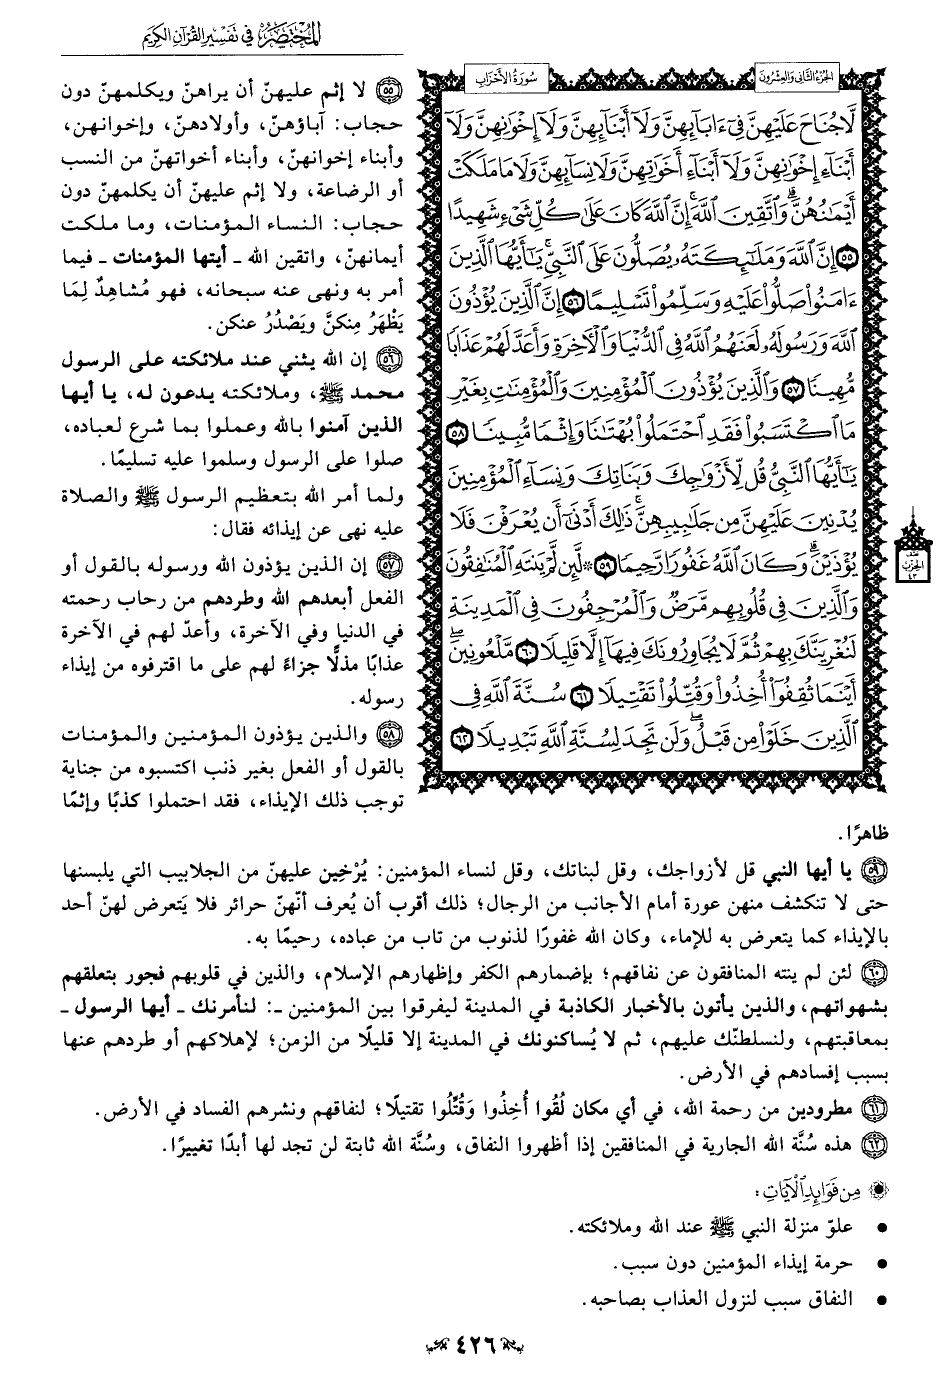 المختصر في تفسير القرآن الكريم
الجزء الثاني والعشرون
سورة الأحزاب
لَّا جُنَاحَ عَلَيْهِنَّ فِىٓ ءَابَآئِهِنَّ وَلَآ أَبْنَآئِهِنَّ وَلَآ إِخْوَٰنِهِنَّ وَلَآ
أَبْنَآءِ إِخْوَٰنِهِنَّ وَلَآ أَبْنَآءِ أَخَوَٰتِهِنَّ وَلَا نِسَآئِهِنَّ وَلَا مَا مَلَكَتْ
أَيْمَٰنُهُنَّۗ وَٱتَّقِينَ ٱللَّهَۚ إِنَّ ٱللَّهَ كَانَ عَلَىٰ كُلِّ شَىْءٍ شَهِيدًا
٥٥ إِنَّ ٱللَّهَ وَمَلَٰٓئِكَتَهُۥ يُصَلُّونَ عَلَى ٱلنَّبِىِّۚ يَٰٓأَيُّهَا ٱلَّذِينَ
ءَامَنُوا۟ صَلُّوا۟ عَلَيْهِ وَسَلِّمُوا۟ تَسْلِيمًا ٥٦ إِنَّ ٱلَّذِينَ يُؤْذُونَ
ٱللَّهَ وَرَسُولَهُۥ لَعَنَهُمُ ٱللَّهُ فِى ٱلدُّنْيَا وَٱلْءَاخِرَةِ وَأَعَدَّ لَهُمْ عَذَابًا
مُّهِينًا ٥٧ وَٱلَّذِينَ يُؤْذُونَ ٱلْمُؤْمِنِينَ وَٱلْمُؤْمِنَٰتِ بِغَيْرِ
مَا ٱكْتَسَبُوا۟ فَقَدِ ٱحْتَمَلُوا۟ بُهْتَٰنًا وَإِثْمًا مُّبِينًا ٥٨
يَٰٓأَيُّهَا ٱلنَّبِىُّ قُل لِّأَزْوَٰجِكَ وَبَنَاتِكَ وَنِسَآءِ ٱلْمُؤْمِنِينَ
يُدْنِينَ عَلَيْهِنَّ مِن جَلَٰبِيبِهِنَّۚ ذَٰلِكَ أَدْنَىٰٓ أَن يُعْرَفْنَ فَلَا
يُؤْذَيْنَۗ وَكَانَ ٱللَّهُ غَفُورًا رَّحِيمًا ٥٩ ۞ لَّئِن لَّمْ يَنتَهِ ٱلْمُنَٰفِقُونَ
وَٱلَّذِينَ فِى قُلُوبِهِم مَّرَضٌ وَٱلْمُرْجِفُونَ فِى ٱلْمَدِينَةِ
لَنُغْرِيَنَّكَ بِهِمْ ثُمَّ لَا يُجَاوِرُونَكَ فِيهَآ إِلَّا قَلِيلًا ٦٠ مَّلْعُونِينَۖ
أَيْنَمَا ثُقِفُوٓا۟ أُخِذُوا۟ وَقُتِّلُوا۟ تَقْتِيلًا ٦١ سُنَّةَ ٱللَّهِ فِى
ٱلَّذِينَ خَلَوْا۟ مِن قَبْلُۖ وَلَن تَجِدَ لِسُنَّةِ ٱللَّهِ تَبْدِيلًا ٦٢
الحزب
٤٣
٥٥ لا إثم عليهنّ أن يراهنّ ويكلمهنّ دون
حجاب: آباؤهنّ، وأولادهنّ، وإخوانهن،
وأبناء إخوانهنّ، وأبناء أخواتهنّ من النسب
أو الرضاعة، ولا إثم عليهنّ أن يكلمهنّ دون
حجاب: النساء المؤمنات، وما ملكت
أيمانهنّ، واتقين الله ـ أيتها المؤمنات ـ فيما
أمر به ونهى عنه سبحانه، فهو مُشاهِدٌ لِمَا
يَظْهَرُ مِنكنَّ ويَصْدُرُ عنكن.
٥٦ إن الله يثني عند ملائكته على الرسول
محمد ﷺ، وملائكته يدعون له، يا أيها
الذين آمنوا بالله وعملوا بما شرع لعباده،
صلوا على الرسول وسلموا عليه تسليمًا.
ولما أمر الله بتعظيم الرسول ﷺ والصلاة
عليه نهى عن إيذائه فقال:
٥٧ إن الذين يؤذون الله ورسوله بالقول أو
الفعل أبعدهم الله وطردهم من رحاب رحمته
في الدنيا وفي الآخرة، وأعدّ لهم في الآخرة
عذابًا مذلًّا جزاءً لهم على ما اقترفوه من إيذاء
رسوله.
٥٨ والذين يؤذون المؤمنين والمؤمنات
بالقول أو الفعل بغير ذنب اكتسبوه من جناية
توجب ذلك الإيذاء، فقد احتملوا كذبًا وإثمًا
ظاهرًا.
٥٩ يا أيها النبي قل لأزواجك، وقل لبناتك، وقل لنساء المؤمنين: يُرْخِين عليهنّ من الجلابيب التي يلبسنها
حتى لا تنكشف منهن عورة أمام الأجانب من الرجال؛ ذلك أقرب أن يُعرف أنّهنّ حرائر فلا يَتعرض لهنّ أحد
بالإيذاء كما يتعرض به للإماء، وكان الله غفورًا لذنوب من تاب من عباده، رحيمًا به.
٦٠ لئن لم ينته المنافقون عن نفاقهم؛ بإضمارهم الكفر وإظهارهم الإسلام، والذين في قلوبهم فجور بتعلقهم
بشهواتهم، والذين يأتون بالأخبار الكاذبة في المدينة ليفرقوا بين المؤمنين ـ: لنأمرنك ـ أيها الرسول ـ
بمعاقبتهم، ولنسلطنّك عليهم، ثم لا يُساكنونك في المدينة إلا قليلًا من الزمن؛ لإهلاكهم أو طردهم عنها
بسبب إفسادهم في الأرض.
٦١ مطرودين من رحمة الله، في أي مكان لُقُوا أُخِذُوا وَقُتِّلُوا تقتيلًا؛ لنفاقهم ونشرهم الفساد في الأرض.
٦٢ هذه سُنَّة الله الجارية في المنافقين إذا أظهروا النفاق، وسُنَّة الله ثابتة لن تجد لها أبدًا تغييرًا.
من فوائد الآيات:
• علوّ منزلة النبي ﷺ عند الله وملائكته.
• حرمة إيذاء المؤمنين دون سبب.
• النفاق سبب لنزول العذاب بصاحبه.
٤٢٦